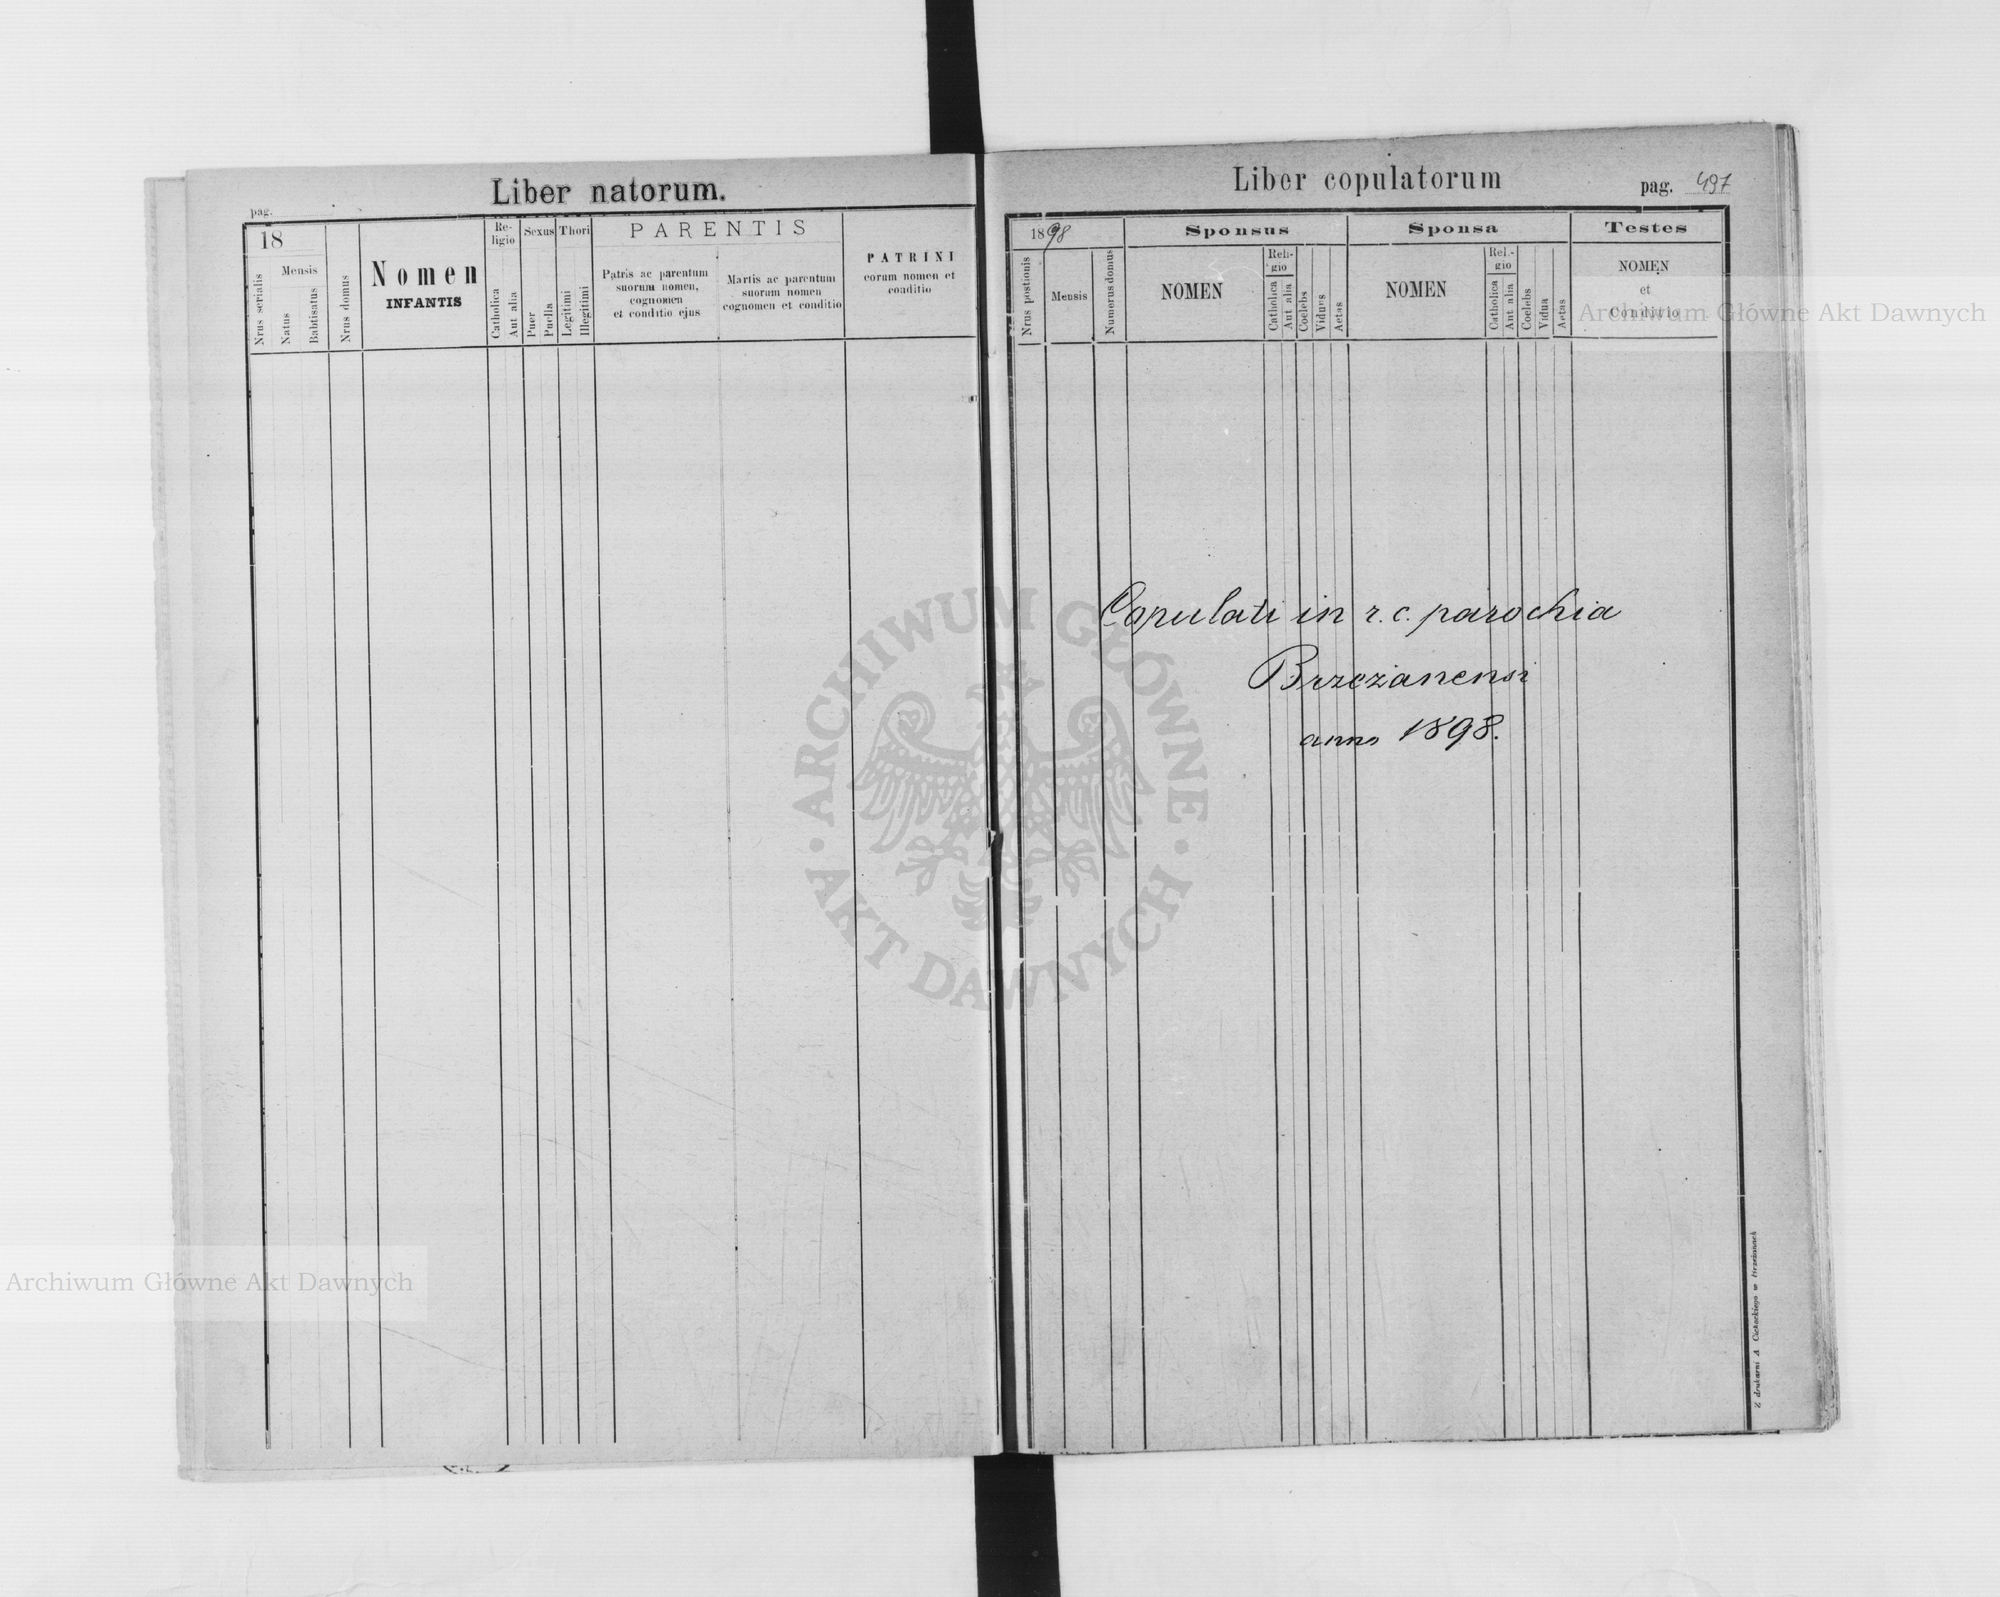 Liber natorum.
pag.
18
Mensis
Nrus serialis
Natus
Babtisatus
Nrus domus
Nomen
INFANTIS
Re-
ligio
Catholica
Aut alia
Sexus
Puer
Puella
Thori
Legitimi
Illegitimi
PARENTIS
Patris ac parentum
suorum nomen,
cognomen
et conditio ejus
Martis ac parentum
suorum nomen
cognomen et conditio
PATRINI
eorum nomen et
conditio
Liber copulatorum
pag. 497
1898
Nrus postionis
Mensis
Numerus domus
Sponsus
NOMEN
Reli-
gio
Catholica
Aut alia
Coelebs
Vidurs
Aetas
Sponsa
NOMEN
Rel.-
gio
Catholica
Aut alia
Coelebs
Vidua
Aetas
Testes
NOMEN
et
Conditio
Copulati in r.c. parochia
Brzeżanensi
anno 1898.
Z drukarni A. Cichockiego w Brzeżanach
Archiwum Główne Akt Dawnych
ARCHIWUM GŁÓWNE · AKT DAWNYCH ·
Archiwum Główne Akt Dawnych